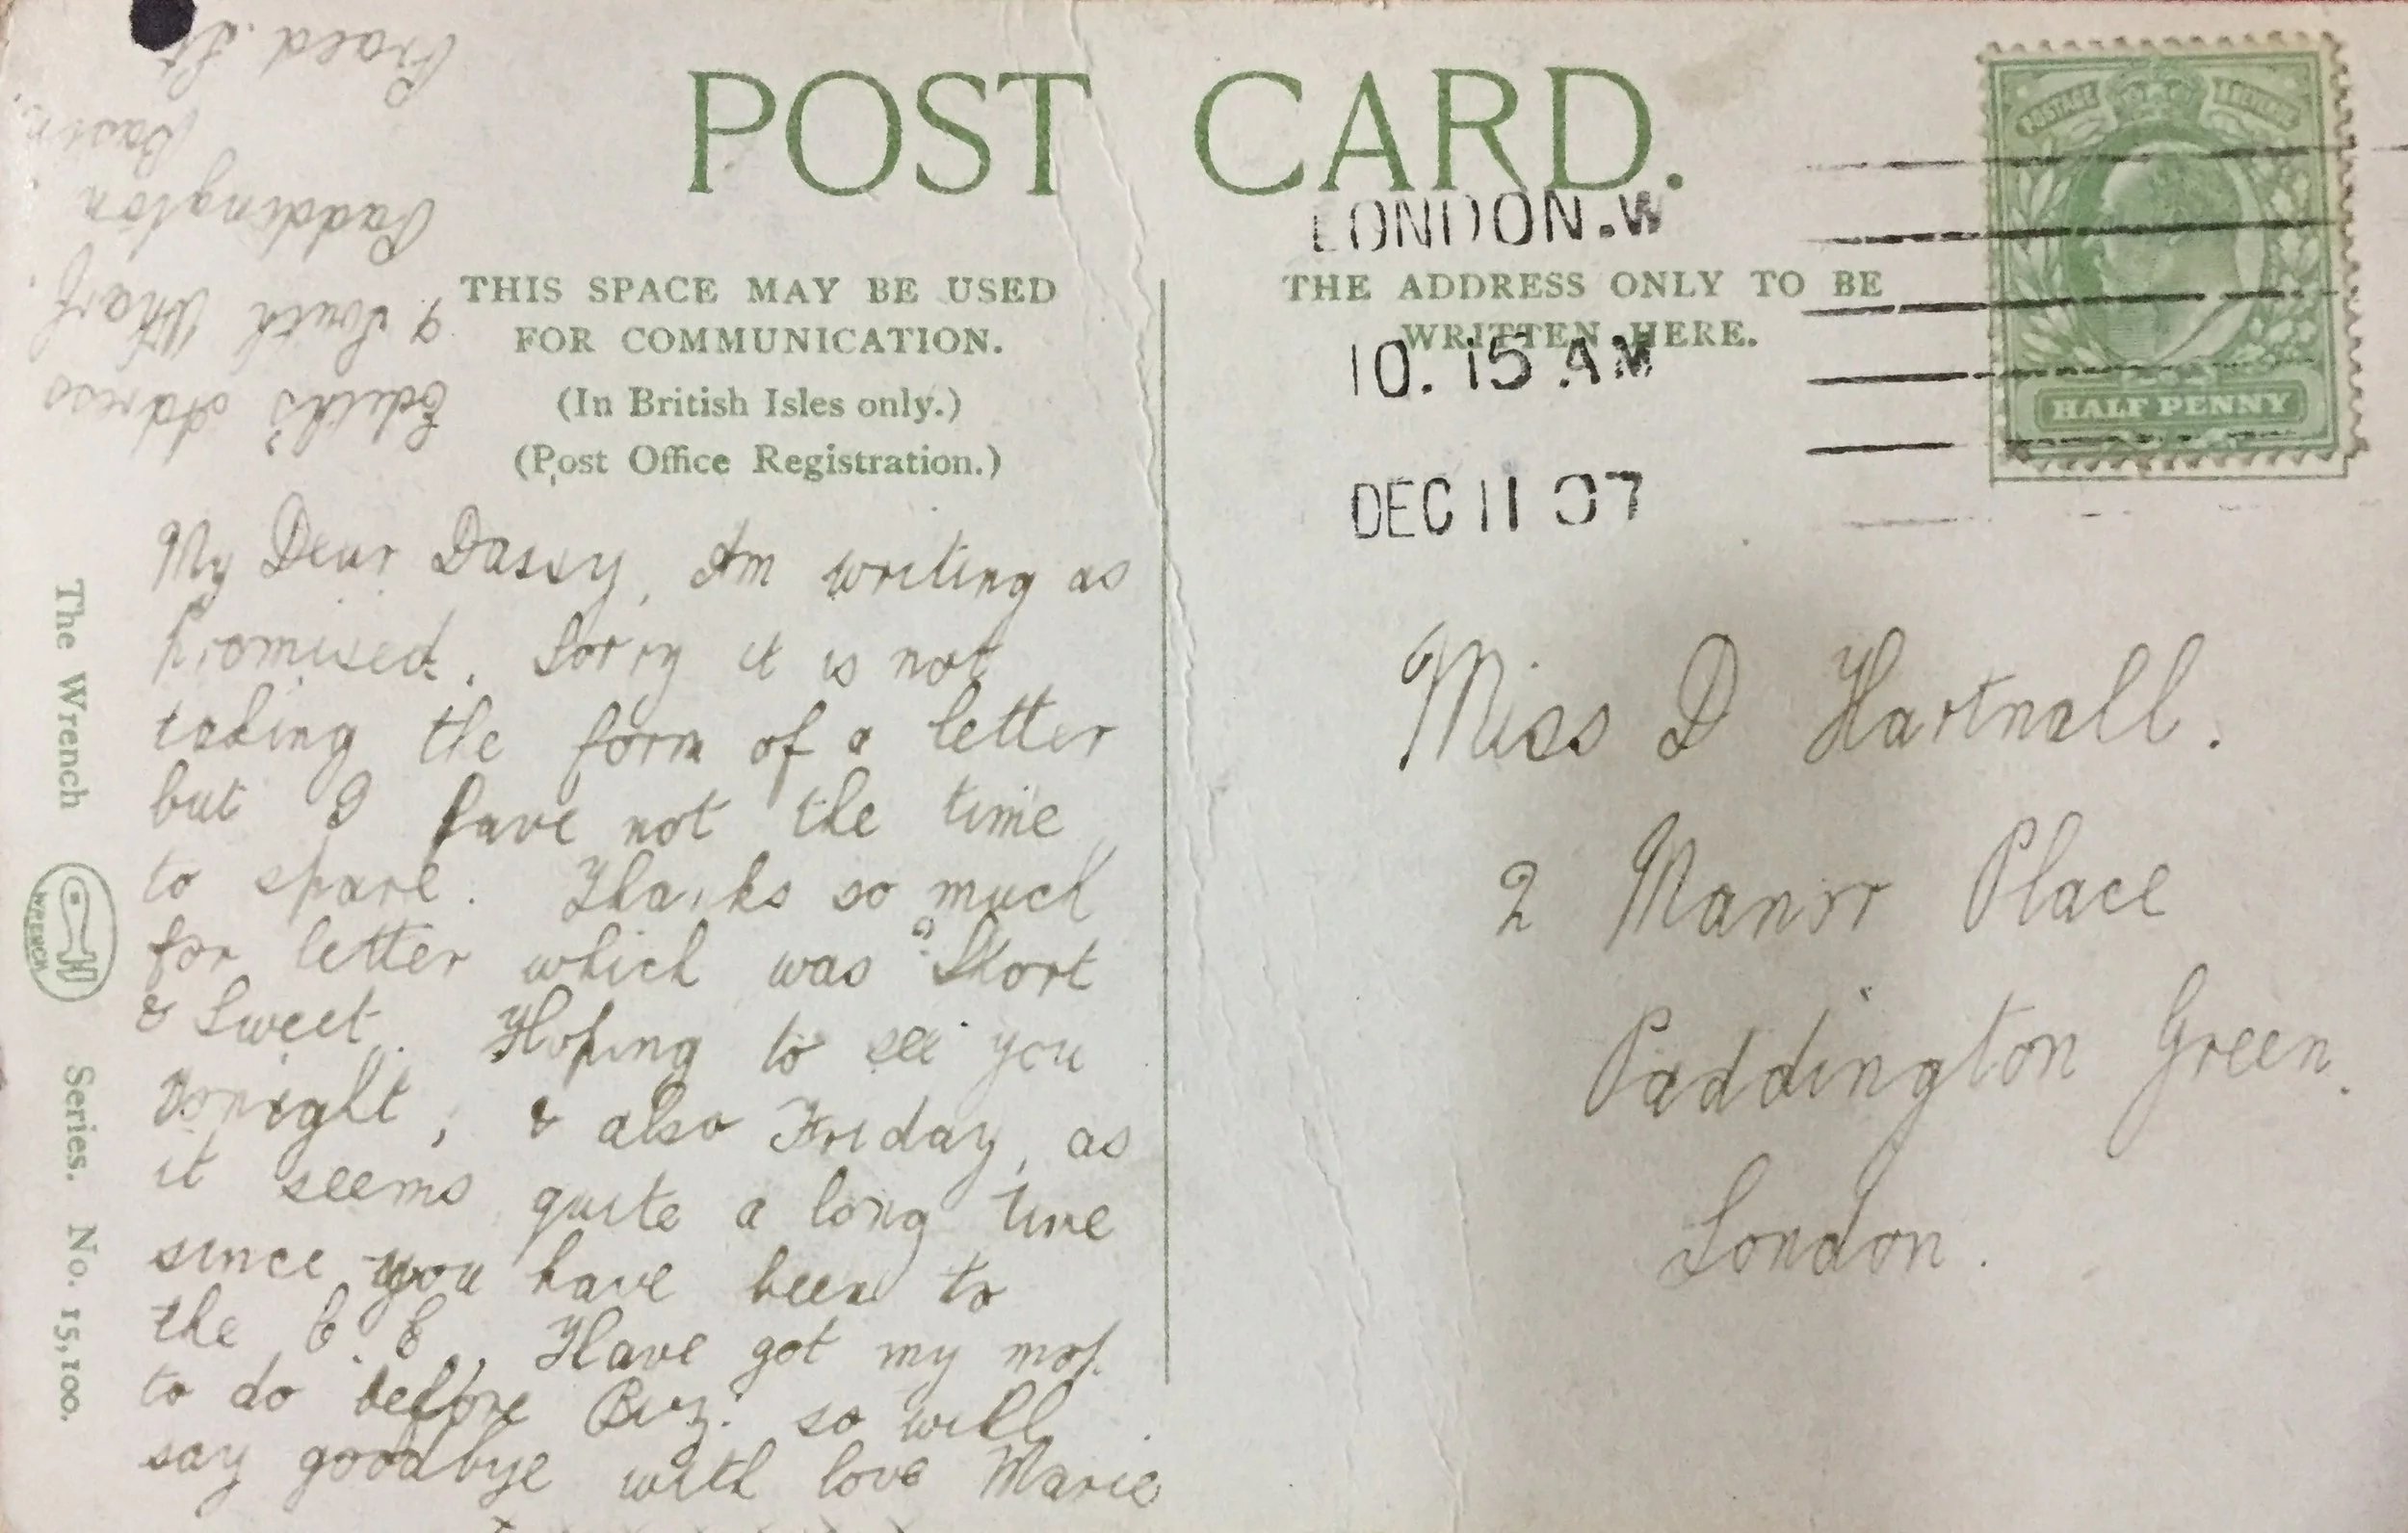 POST CARD.
THIS SPACE MAY BE USED
FOR COMMUNICATION.
(In British Isles only.)
(Post Office Registration.)
THE ADDRESS ONLY TO BE
WRITTEN HERE.
LONDON.W
10.15 AM
DEC 11 07
POSTAGE REVENUE
HALF PENNY
Edith's Adress
9 South Wharf.
Paddington
Basin.
Praed. St
My Dear Dassy, Am writing as
promised. Sorry it is not
taking the form of a letter
but I have not the time
to spare. Thanks so much
for letter which was "Short
& Sweet". Hoping to see you
tonight, & also Friday, as
it seems quite a long time
since you have been to
the C.C., Have got my mop.
to do before Biz: so will
say goodbye with love Marie
x x x x x x
Miss D Hartnall.
2 Manor Place
Paddington Green.
London.
The Wrench
WRENCH
Series. No. 15,100.